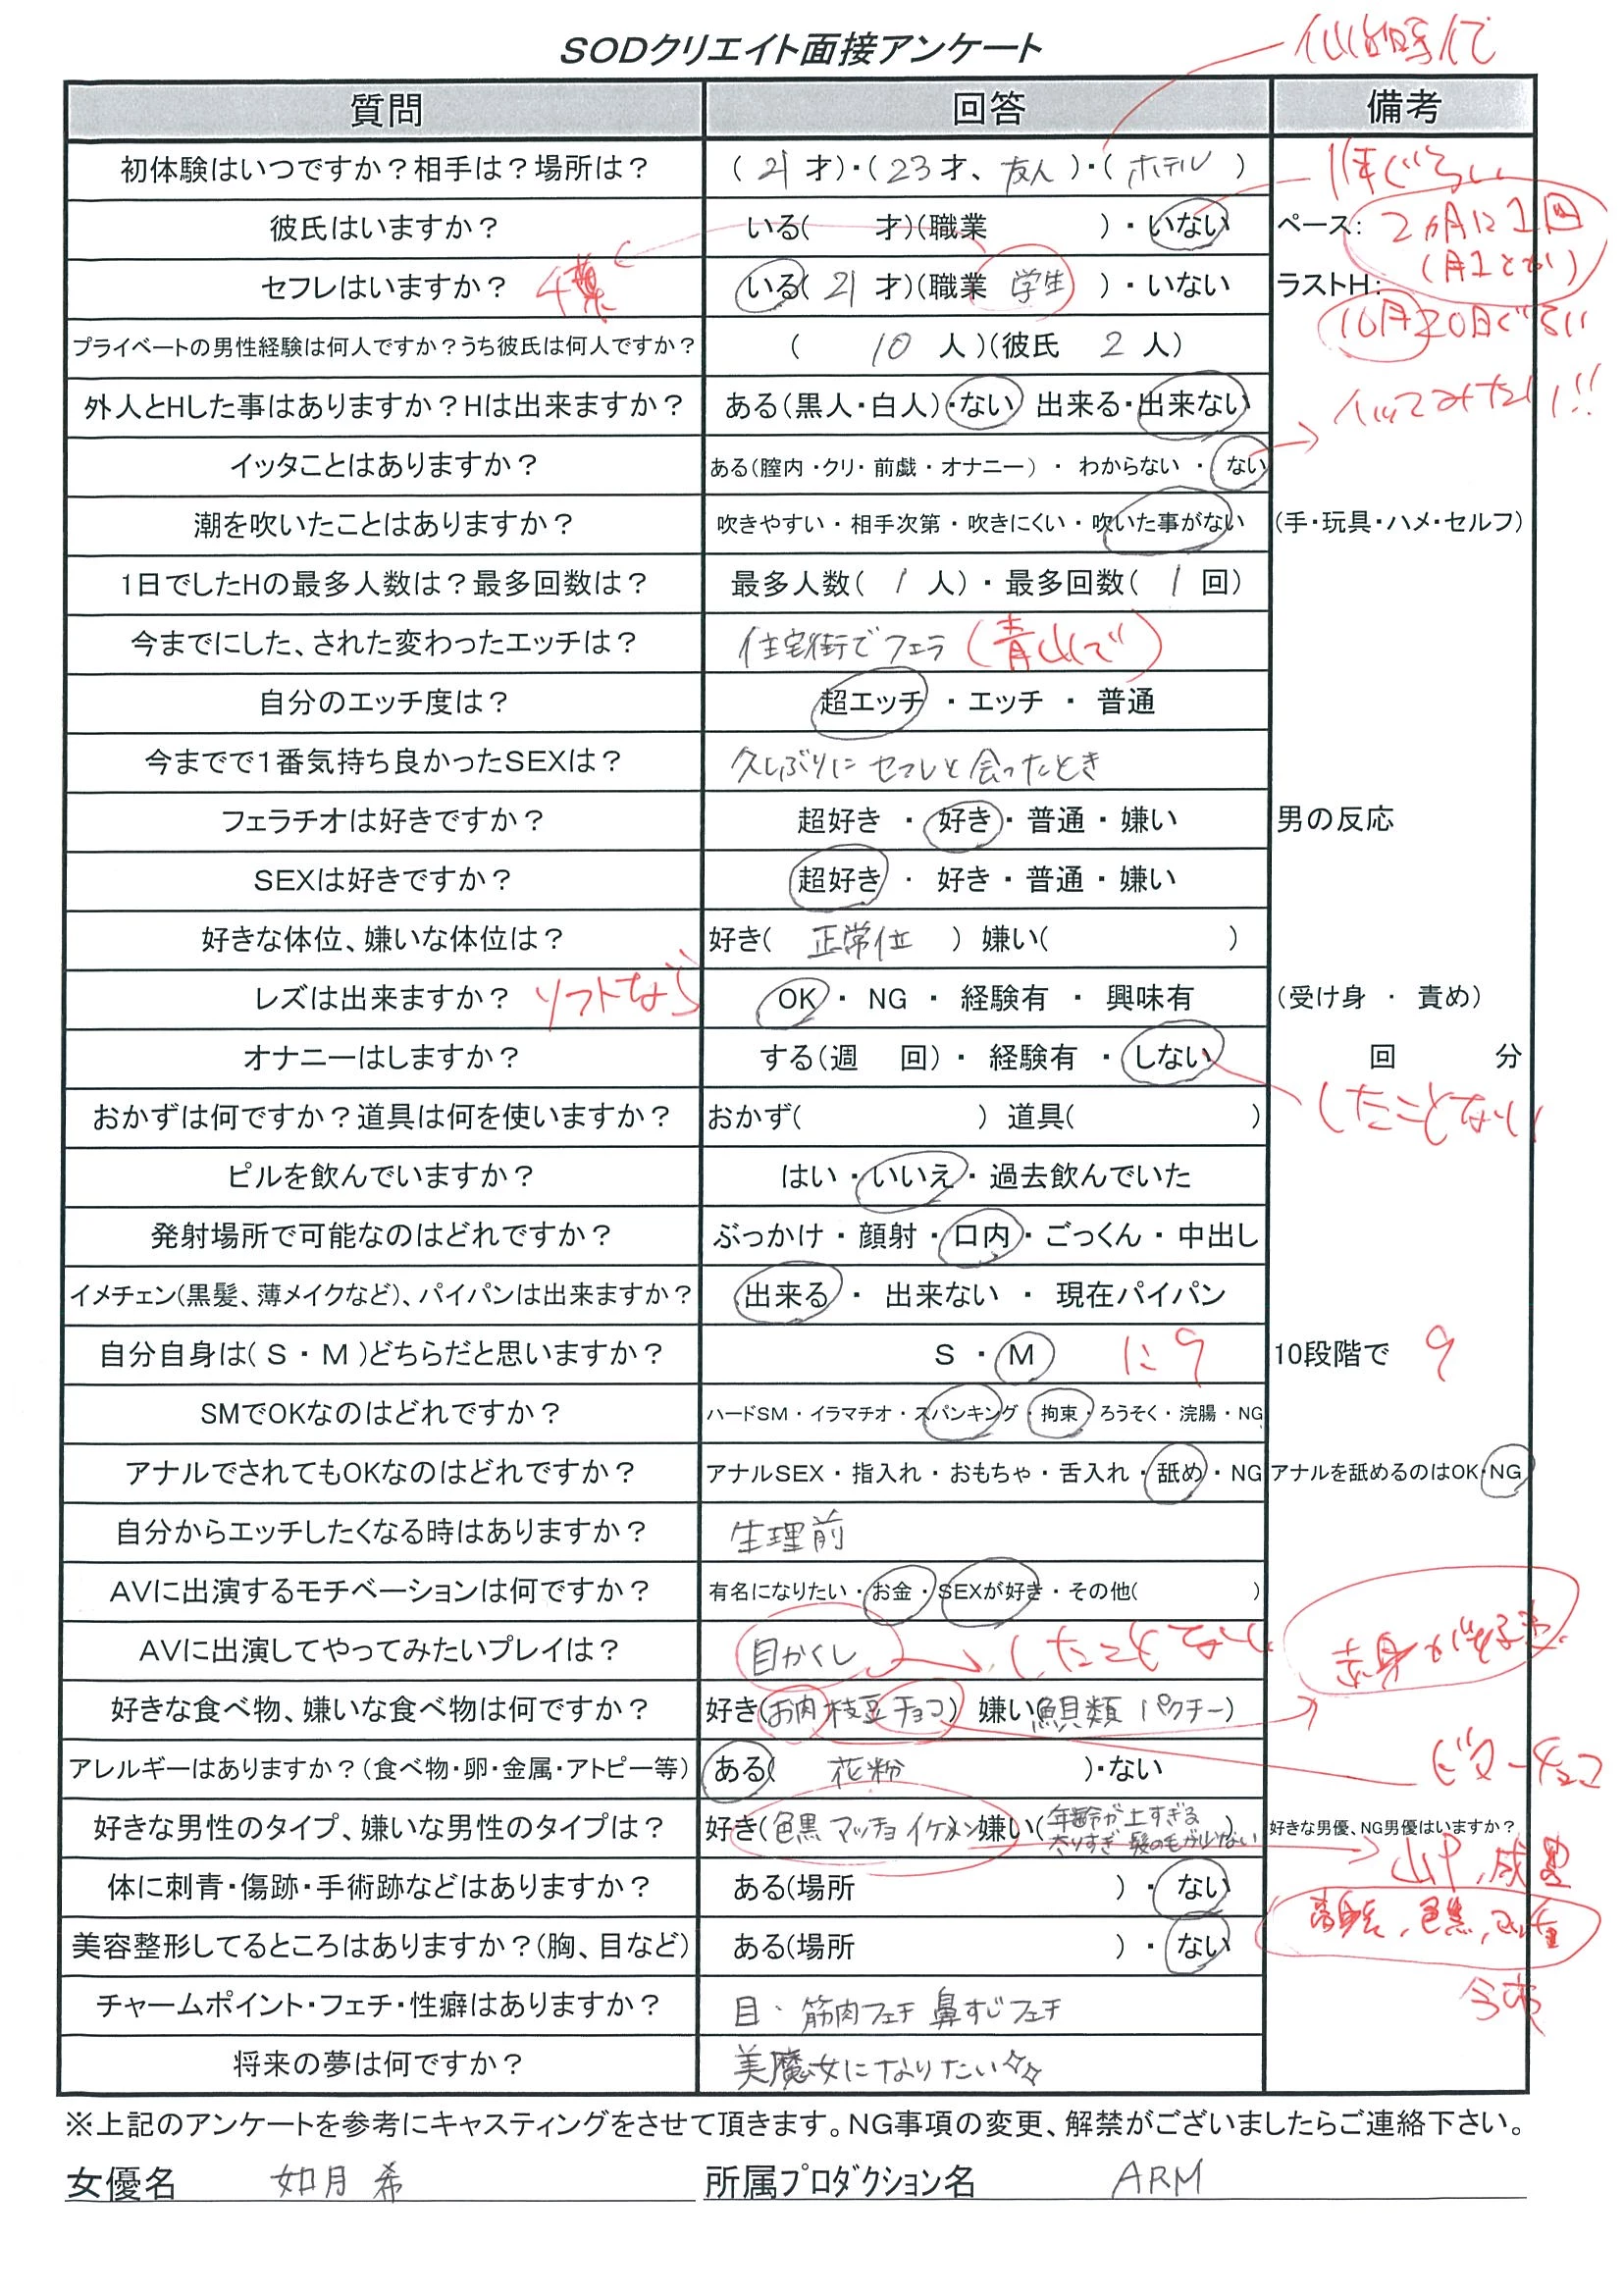 SODクリエイト面接アンケート
質問 回答 備考
初体験はいつですか?相手は?場所は? ( 21 才)・( 23才、 友人 )・( ホテル )
1年ぐらい
彼氏はいますか? いる( 才)(職業 )・いない ペース: 2ヵ月に1回
(月1とか)
セフレはいますか? 千葉 いる( 21 才)(職業 学生 )・いない ラストH:
10月20日ぐらい
プライベートの男性経験は何人ですか?うち彼氏は何人ですか? ( 10 人)(彼氏 2 人)
外人とHした事はありますか?Hは出来ますか? ある(黒人・白人)・ない 出来る・出来ない イッてみたい!!
イッタことはありますか? ある(膣内・クリ・前戯・オナニー)・わからない・ない
潮を吹いたことはありますか? 吹きやすい・相手次第・吹きにくい・吹いた事がない (手・玩具・ハメ・セルフ)
1日でしたHの最多人数は?最多回数は? 最多人数( 1 人)・最多回数( 1 回)
今までにした、された変わったエッチは? 住宅街でフェラ (青山で)
自分のエッチ度は? 超エッチ・エッチ・普通
今までで1番気持ち良かったSEXは? 久しぶりに セフレと 会ったとき
フェラチオは好きですか? 超好き・好き・普通・嫌い 男の反応
SEXは好きですか? 超好き・好き・普通・嫌い
好きな体位、嫌いな体位は? 好き( 正常位 ) 嫌い( )
レズは出来ますか? ソフトなら OK・NG・経験有・興味有 (受け身・責め)
オナニーはしますか? する(週 回)・経験有・しない 回 分
したことない
おかずは何ですか?道具は何を使いますか? おかず( ) 道具( )
ピルを飲んでいますか? はい・いいえ・過去飲んでいた
発射場所で可能なのはどれですか? ぶっかけ・顔射・口内・ごっくん・中出し
イメチェン(黒髪、薄メイクなど)、パイパンは出来ますか? 出来る・出来ない・現在パイパン
自分自身は( S・M )どちらだと思いますか? S・M に9 10段階で 9
SMでOKなのはどれですか? ハードSM・イラマチオ・スパンキング・拘束・ろうそく・浣腸・NG
アナルでされてもOKなのはどれですか? アナルSEX・指入れ・おもちゃ・舌入れ・舐め・NG アナルを舐めるのはOK・NG
自分からエッチしたくなる時はありますか? 生理前
AVに出演するモチベーションは何ですか? 有名になりたい・お金・SEXが好き・その他( )
AVに出演してやってみたいプレイは? 目かくし したことない 赤身が好き
好きな食べ物、嫌いな食べ物は何ですか? 好き(お肉 枝豆 チョコ) 嫌い(貝類 パクチー)
アレルギーはありますか?(食べ物・卵・金属・アトピー等) ある( 花粉 )・ない ビターチョコ
好きな男性のタイプ、嫌いな男性のタイプは? 好き(色黒 マッチョ イケメン 嫌い(年齢が上すぎる
太りすぎ 髪の毛が少ない) 好きな男優、NG男優はいますか?
山P
体に刺青・傷跡・手術跡などはありますか? ある(場所 )・ない
美容整形してるところはありますか?(胸、目など) ある(場所 )・ない
チャームポイント・フェチ・性癖はありますか? 目・筋肉フェチ 鼻すじフェチ
将来の夢は何ですか? 美魔女になりたい☆☆
※上記のアンケートを参考にキャスティングをさせて頂きます。NG事項の変更、解禁がございましたらご連絡下さい。
女優名 如月 希 所属プロダクション名 ARM